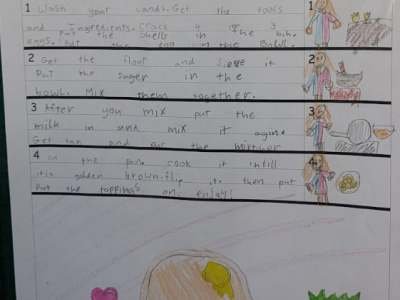 1 Wash your hands. Get the tools 1
and Ingredients. Crack 4 the
Put the shells in the bin.
eggs. Put the egg in the Bowl.
2 Get the flour and Sieve it 2
Put the suger in the
bowl. Mix them together.
3 After you mix put the 3
milk in and mix it agine.
Get and put the
4 on the pan. cook it intill 4
it is golden brown. flip it. then put
put the toppings on. enjoy!